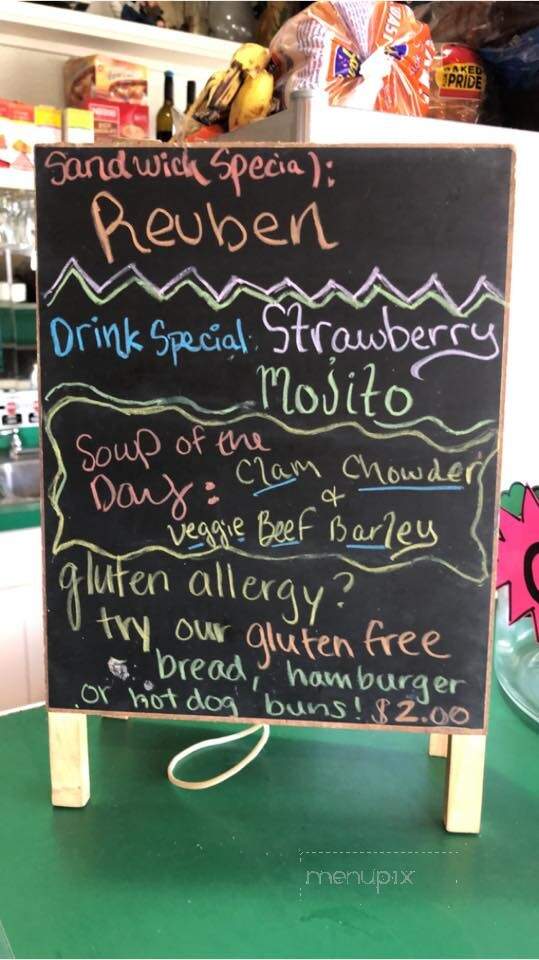 Sandwich Special:
Reuben
Drink Special: Strawberry
Mojito
Soup of the
Day:
Clam Chowder
&
Veggie Beef Barley
gluten allergy?
try our gluten free
bread, hamburger
or hot dog buns! $2.00
BAKED
PRIDE
menupix